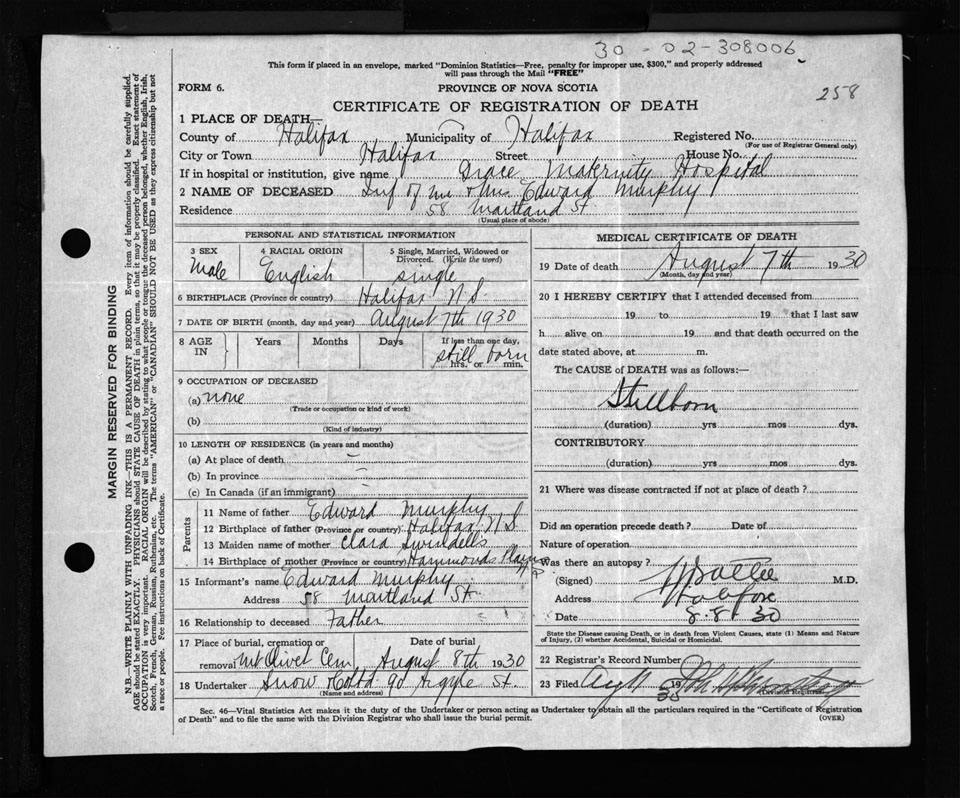 30-02-308006
This form if placed in an envelope, marked "Dominion Statistics—Free, penalty for improper use, $300," and properly addressed
will pass through the Mail "FREE"
258
FORM 6. PROVINCE OF NOVA SCOTIA
CERTIFICATE OF REGISTRATION OF DEATH
1 PLACE OF DEATH—
County of Halifax Municipality of Halifax Registered No.
(For use of Registrar General only)
City or Town Halifax Street House No.
If in hospital or institution, give name Grace Maternity Hospital
2 NAME OF DECEASED Inf of Mr & Mrs Edward Murphy
Residence 58 Maitland St
(Usual place of abode)
PERSONAL AND STATISTICAL INFORMATION
3 SEX 4 RACIAL ORIGIN 5 Single, Married, Widowed or
Divorced. (Write the word)
Male English single
6 BIRTHPLACE (Province or country) Halifax N.S.
7 DATE OF BIRTH (month, day and year) August 7th 1930
8 AGE IN Years Months Days If less than one day,
still born
hrs. or min.
9 OCCUPATION OF DECEASED
(a) none
(Trade or occupation or kind of work)
(b)
(Kind of industry)
10 LENGTH OF RESIDENCE (in years and months)
(a) At place of death —
(b) In province —
(c) In Canada (if an immigrant) —
Parents
11 Name of father Edward Murphy
12 Birthplace of father (Province or country) Halifax N S
13 Maiden name of mother Clara Swindells
14 Birthplace of mother (Province or country) Hammonds Plains
15 Informant's name Edward Murphy
Address 58 Maitland St.
16 Relationship to deceased Father
17 Place of burial, cremation or Date of burial
removal Mt Olivet Cem August 8th 1930
18 Undertaker Snow & Co Ltd 90 Argyle St.
(Name and address)
MEDICAL CERTIFICATE OF DEATH
19 Date of death August 7th 1930
(Month, day and year)
20 I HEREBY CERTIFY that I attended deceased from
19 to 19 that I last saw
h alive on 19 and that death occurred on the
date stated above, at m.
The CAUSE of DEATH was as follows:—
Stillborn
(duration) yrs mos dys.
CONTRIBUTORY
(duration) yrs mos dys.
21 Where was disease contracted if not at place of death?
Did an operation precede death? Date of
Nature of operation
Was there an autopsy?
(Signed) M.D.
Address Halifax
Date 8-8-30
State the Disease causing Death, or in death from Violent Causes, state (1) Means and Nature
of Injury, (2) whether Accidental, Suicidal or Homicidal.
22 Registrar's Record Number
23 Filed Aug 11 1930
(Division Registrar)
Sec. 46—Vital Statistics Act makes it the duty of the Undertaker or person acting as Undertaker to obtain all the particulars required in the "Certificate of Registration
of Death" and to file the same with the Division Registrar who shall issue the burial permit. (OVER)
MARGIN RESERVED FOR BINDING
N.B.—WRITE PLAINLY WITH UNFADING INK—THIS IS A PERMANENT RECORD. Every item of information should be carefully supplied.
AGE should be stated EXACTLY. PHYSICIANS should STATE CAUSE OF DEATH in plain terms, so that it may be properly classified. Exact statement of
OCCUPATION is very important. RACIAL ORIGIN will be described by stating to what people or tongue the deceased person belonged, whether English, Irish,
Scotch, French, German, Russian, Ruthenian, etc. The terms "AMERICAN" or "CANADIAN" SHOULD NOT BE USED as they express citizenship but not
a race or people. See instructions on back of Certificate.